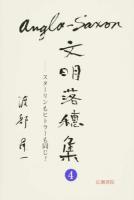 Anglo-Saxon
文明落穂集
④
――スターリンもヒトラーも同じ!
渡部昇一
広瀬書院